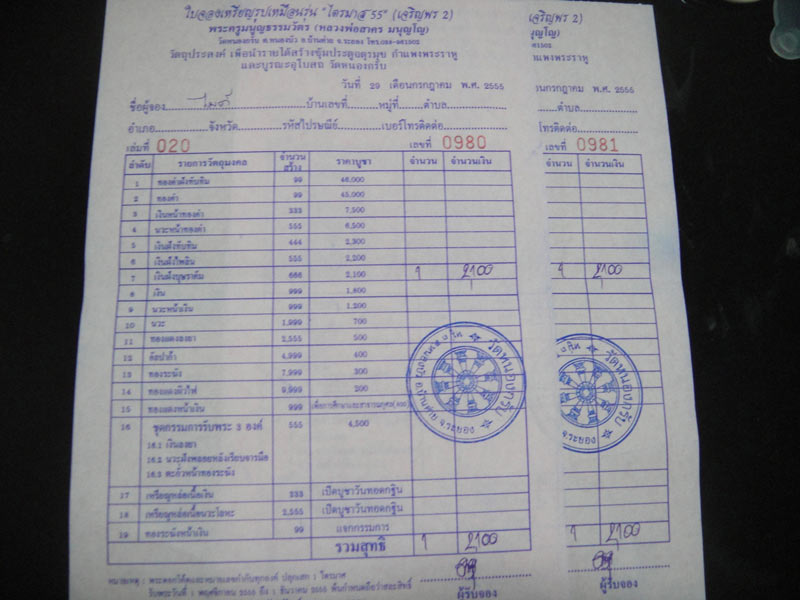 ใบจองเหรียญรูปเหมือนรุ่น "ไตรมาส 55" (เจริญพร 2)
พระครูมนูญธรรมวัตร (หลวงพ่อสาคร มนุญโญ)
วัดหนองกรับ ต.หนองบัว อ.บ้านค่าย จ.ระยอง โทร.
วัตถุประสงค์ เพื่อนำรายได้สร้างซุ้มประตูจตุรมุข กำแพงพระราหู
และบูรณะอุโบสถ วัดหนองกรับ
วันที่ 29 เดือนกรกฎาคม พ.ศ. 2555
ชื่อผู้จอง บ้านเลขที่ หมู่ที่ ตำบล
อำเภอ จังหวัด รหัสไปรษณีย์ เบอร์โทรติดต่อ
เล่มที่ 020 เลขที่ 0980
ลำดับ รายการวัตถุมงคล จำนวนสร้าง ราคาบูชา จำนวน จำนวนเงิน
1 ทองคำฝังทับทิม 99 46,000
2 ทองคำ 99 45,000
3 เงินหน้าทองคำ 333 7,500
4 นวะหน้าทองคำ 555 6,500
5 เงินฝังทับทิม 444 2,300
6 เงินฝังไพลิน 555 2,200
7 เงินฝังบุษราคัม 666 2,100 1 2100
8 เงิน 999 1,800
9 นวะหน้าเงิน 999 1,200
10 นวะ 1,999 700
11 ทองแดงลงยา 2,555 500
12 อัลปาก้า 4,999 400
13 ทองระฆัง 7,999 300
14 ทองแดงผิวไฟ 9,999 200
15 ทองแดงหน้าเงิน 999
16 ชุดกรรมการรับพระ 3 องค์ 555 4,500
16.1 เงินลงยา
16.2 นวะฝังพลอยหลังเรียบจารมือ
16.3 ตะกั่วหน้าทองระฆัง
17 เหรียญหล่อเนื้อเงิน 333 เปิดบูชาวันทอดกฐิน
18 เหรียญหล่อเนื้อนวะโลหะ 2,555 เปิดบูชาวันทอดกฐิน
19 ทองระฆังหน้าเงิน 99 แจกกรรมการ
รวมสุทธิ 1 2100
ผู้รับจอง
หมายเหตุ : พระตอกโค๊ตและหมายเลขกำกับทุกองค์ ปลุกเสก 1 ไตรมาส
รับพระวันที่ 1 พฤศจิกายน 2555 ถึง 1 ธันวาคม 2555 พ้นกำหนดถือว่าสละสิทธิ์
วัดหนองกรับ
จ.ระยอง
เจริญพร 2)
นุญโญ)
กำแพงพระราหู
นกรกฎาคม พ.ศ. 2555
ตำบล
โทรติดต่อ
เลขที่ 0981
จำนวน จำนวนเงิน
1 2100
วัดหนองกรับ
จ.ระยอง
1 2100
ผู้รับจอง